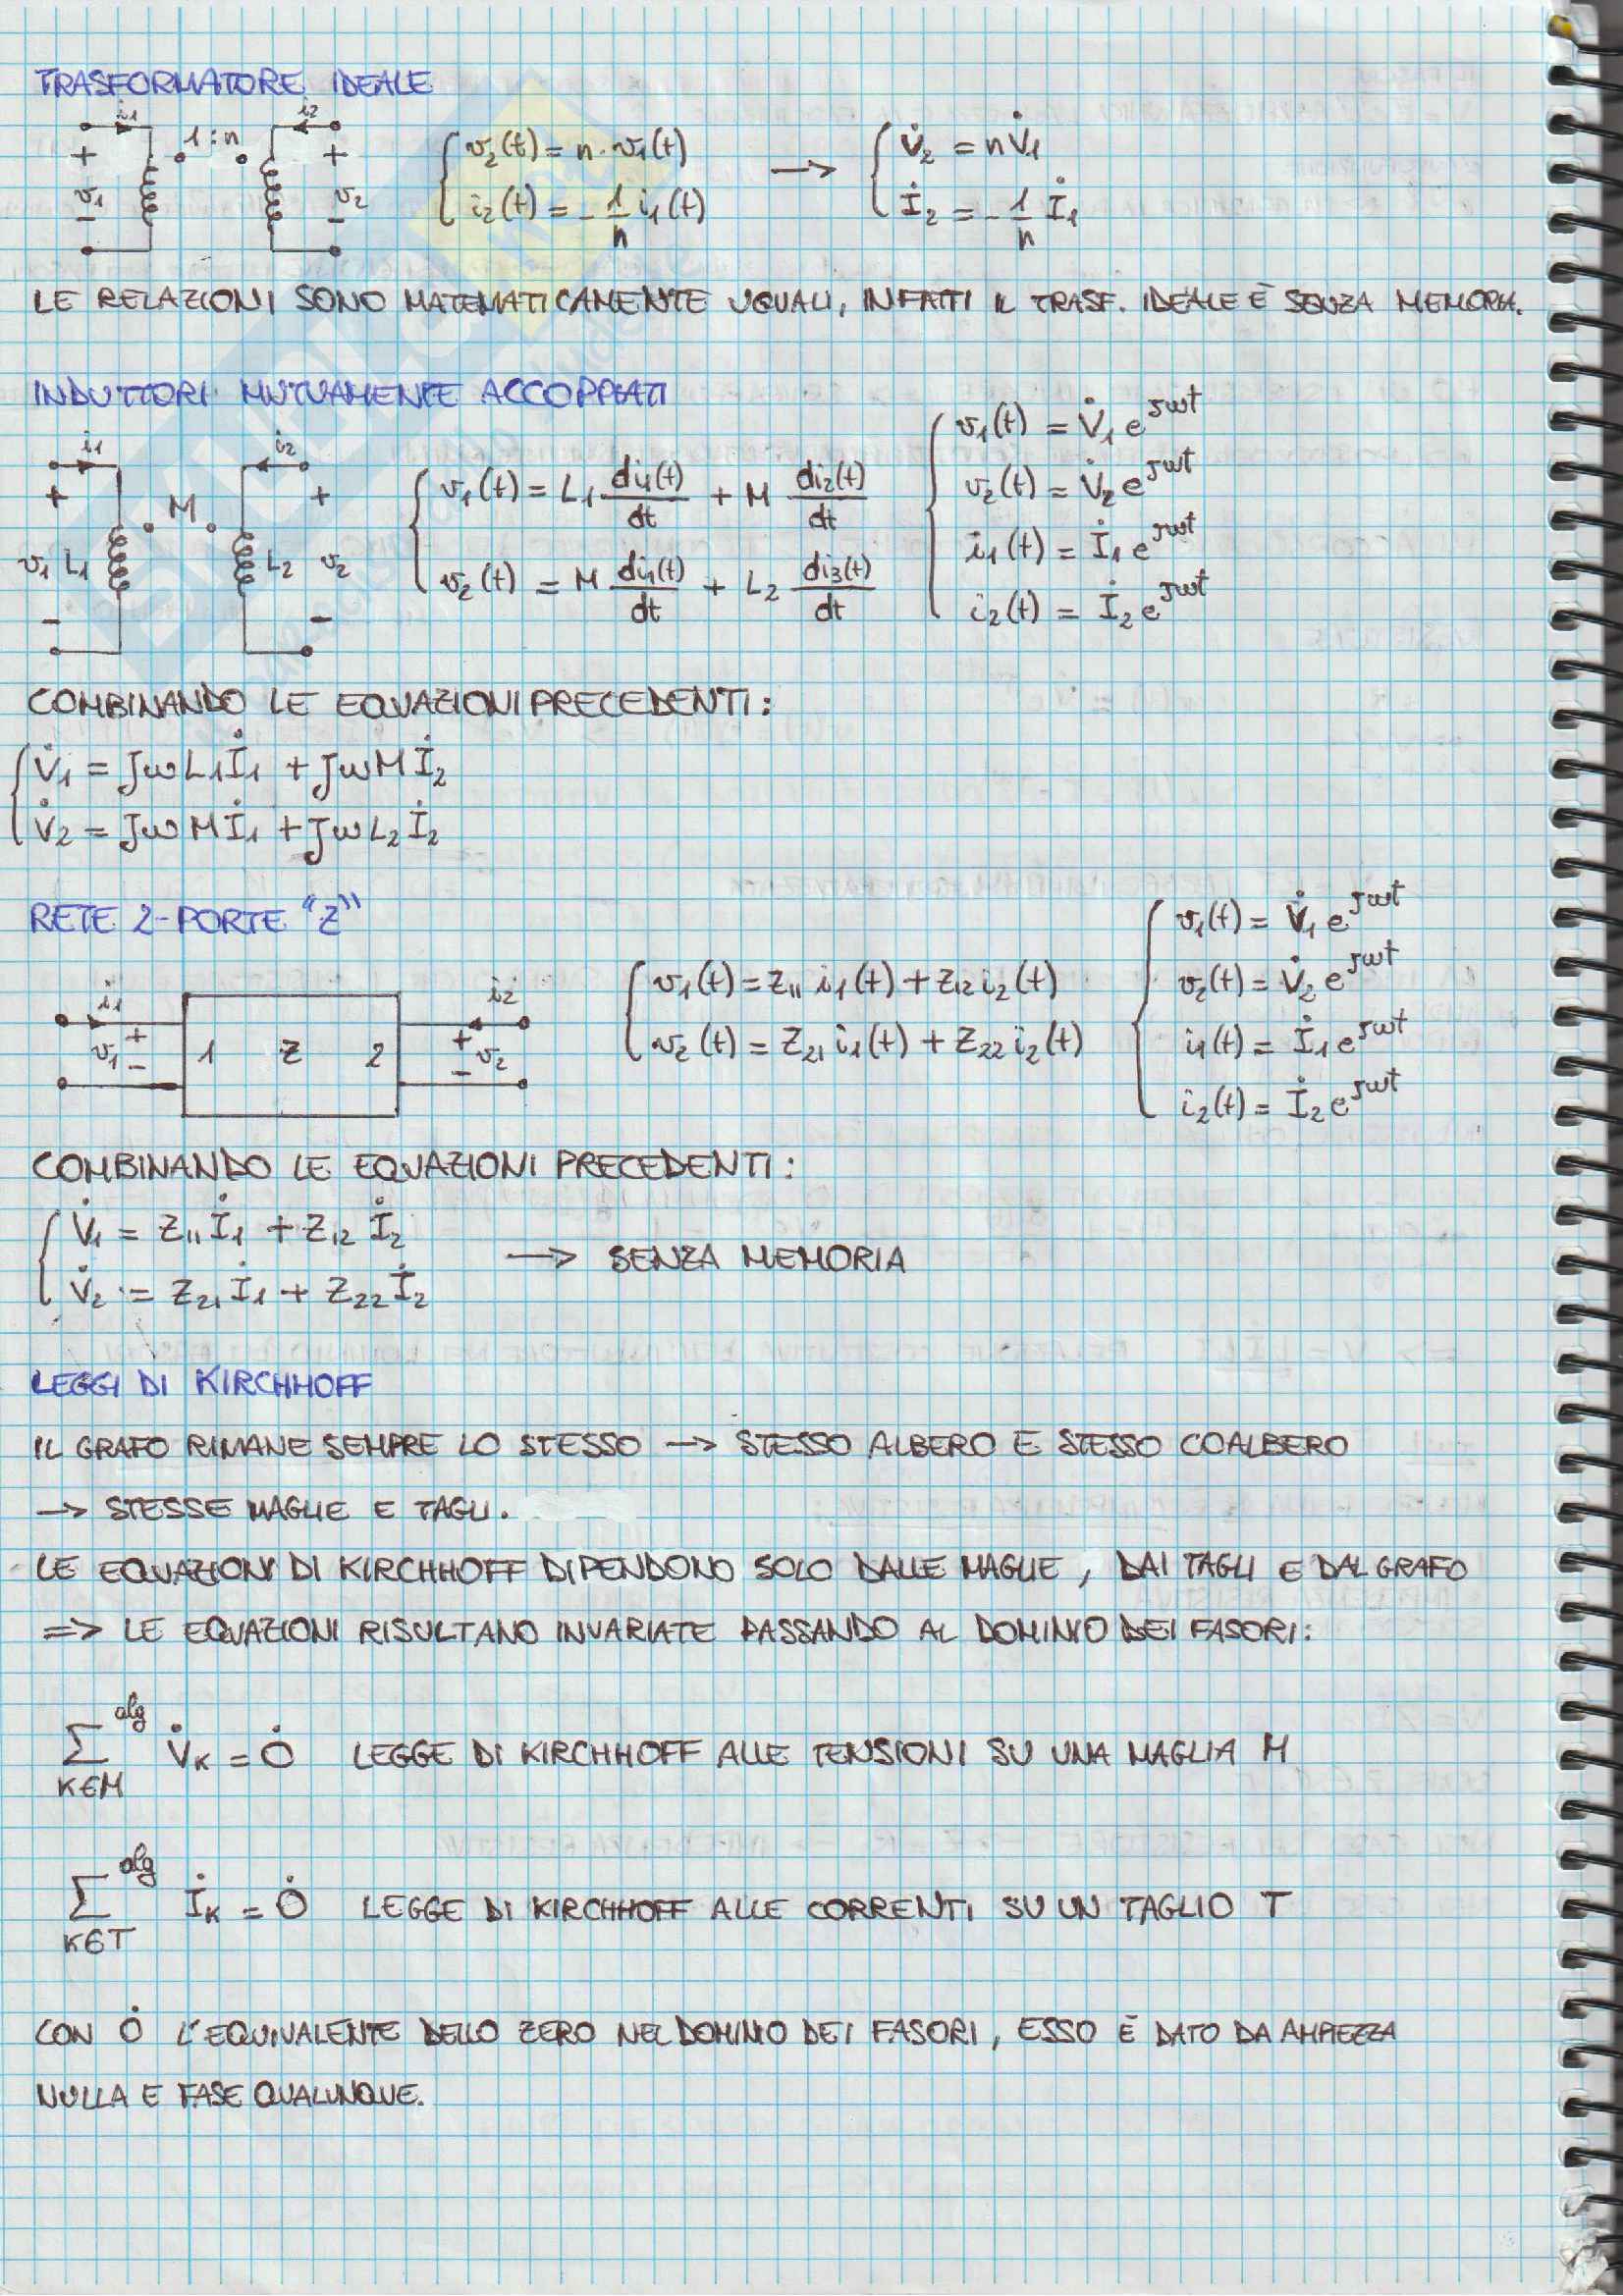 TRASFORMATORE IDEALE
i₁ 1:n i₂
+ v₁ − + v₂ −
{ v₂(t) = n·v₁(t) → { V̇₂ = n V̇₁
i₂(t) = -1/n i₁(t) İ₂ = -1/n İ₁
LE RELAZIONI SONO MATEMATICAMENTE UGUALI, INFATTI IL TRASF. IDEALE È SENZA MEMORIA.
INDUTTORI MUTUAMENTE ACCOPPIATI
i₁ i₂
+ M +
v₁ L₁ L₂ v₂
− −
{ v₁(t) = L₁ di₁(t)/dt + M di₂(t)/dt
v₂(t) = M di₁(t)/dt + L₂ di₃(t)/dt
{ v₁(t) = V̇₁ e^jωt
v₂(t) = V̇₂ e^jωt
i₁(t) = İ₁ e^jωt
i₂(t) = İ₂ e^jωt
COMBINANDO LE EQUAZIONI PRECEDENTI:
{ V̇₁ = JωL₁İ₁ + JωMİ₂
V̇₂ = JωMİ₁ + JωL₂İ₂
RETE 2-PORTE "Z"
i₁ i₂
+ v₁ − 1 Z 2 + v₂ −
{ v₁(t) = Z₁₁ i₁(t) + Z₁₂ i₂(t)
v₂(t) = Z₂₁ i₁(t) + Z₂₂ i₂(t)
{ v₁(t) = V̇₁ e^jωt
v₂(t) = V̇₂ e^jωt
i₁(t) = İ₁ e^jωt
i₂(t) = İ₂ e^jωt
COMBINANDO LE EQUAZIONI PRECEDENTI:
{ V̇₁ = Z₁₁ İ₁ + Z₁₂ İ₂
V̇₂ = Z₂₁ İ₁ + Z₂₂ İ₂
→ SENZA MEMORIA
LEGGI DI KIRCHHOFF
IL GRAFO RIMANE SEMPRE LO STESSO → STESSO ALBERO E STESSO COALBERO
→ STESSE MAGLIE E TAGLI.
LE EQUAZIONI DI KIRCHHOFF DIPENDONO SOLO DALLE MAGLIE, DAI TAGLI E DAL GRAFO
=> LE EQUAZIONI RISULTANO INVARIATE PASSANDO AL DOMINIO DEI FASORI:
alg
Σ V̇K = 0̇ LEGGE DI KIRCHHOFF ALLE TENSIONI SU UNA MAGLIA M
K∈M
alg
Σ İK = 0̇ LEGGE DI KIRCHHOFF ALLE CORRENTI SU UN TAGLIO T
K∈T
CON 0̇ L'EQUIVALENTE DELLO ZERO NEL DOMINIO DEI FASORI, ESSO È DATO DA AMPIEZZA
NULLA E FASE QUALUNQUE.